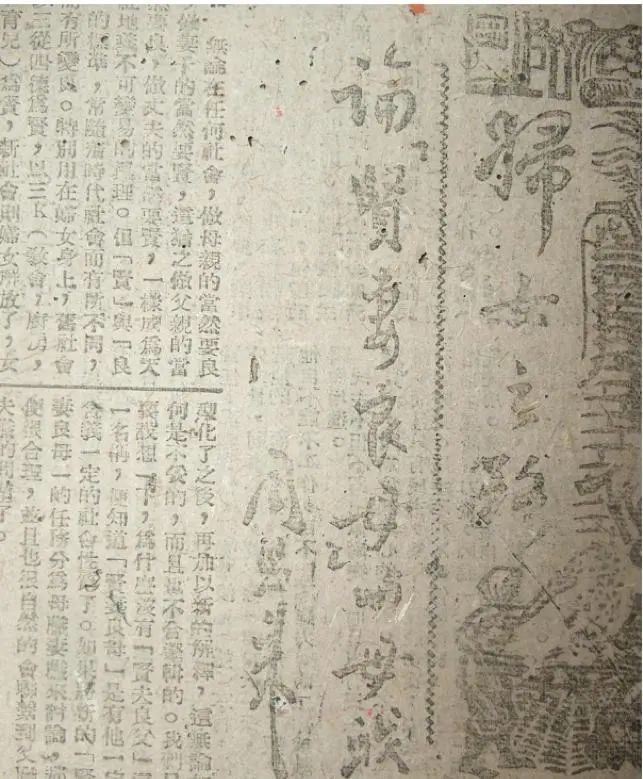 婦女之路
論「賢妻良母」與母職
周恩來
無論在任何社會,做母親的當然要良
做妻子的當然要賢,這猶之做父親的當
要良,做丈夫的當然要賢,一樣成為天
地義不可變易的真理。但「賢」與「良
的標準,常隨着時代社會而有所不同,
而有所變更。特別用在婦女身上,舊社會
以三從四德為賢,以三K(教會,廚房,
育兒)為賢,新社會則婦女解放了,女
理化了之後,再加以新的解釋,這無論
何是不妥的,而且也不合邏輯的。我們只
要設想一下,為什麼沒有「賢夫良父」這
一名稱,便知道「賢妻良母」是有他一定
含義一定的社會性質了。如果將新的「賢
妻良母」的任務分為母職妻職來討論,那
便很合理,並且也很自然的會聯繫到父職
夫職的問題了。